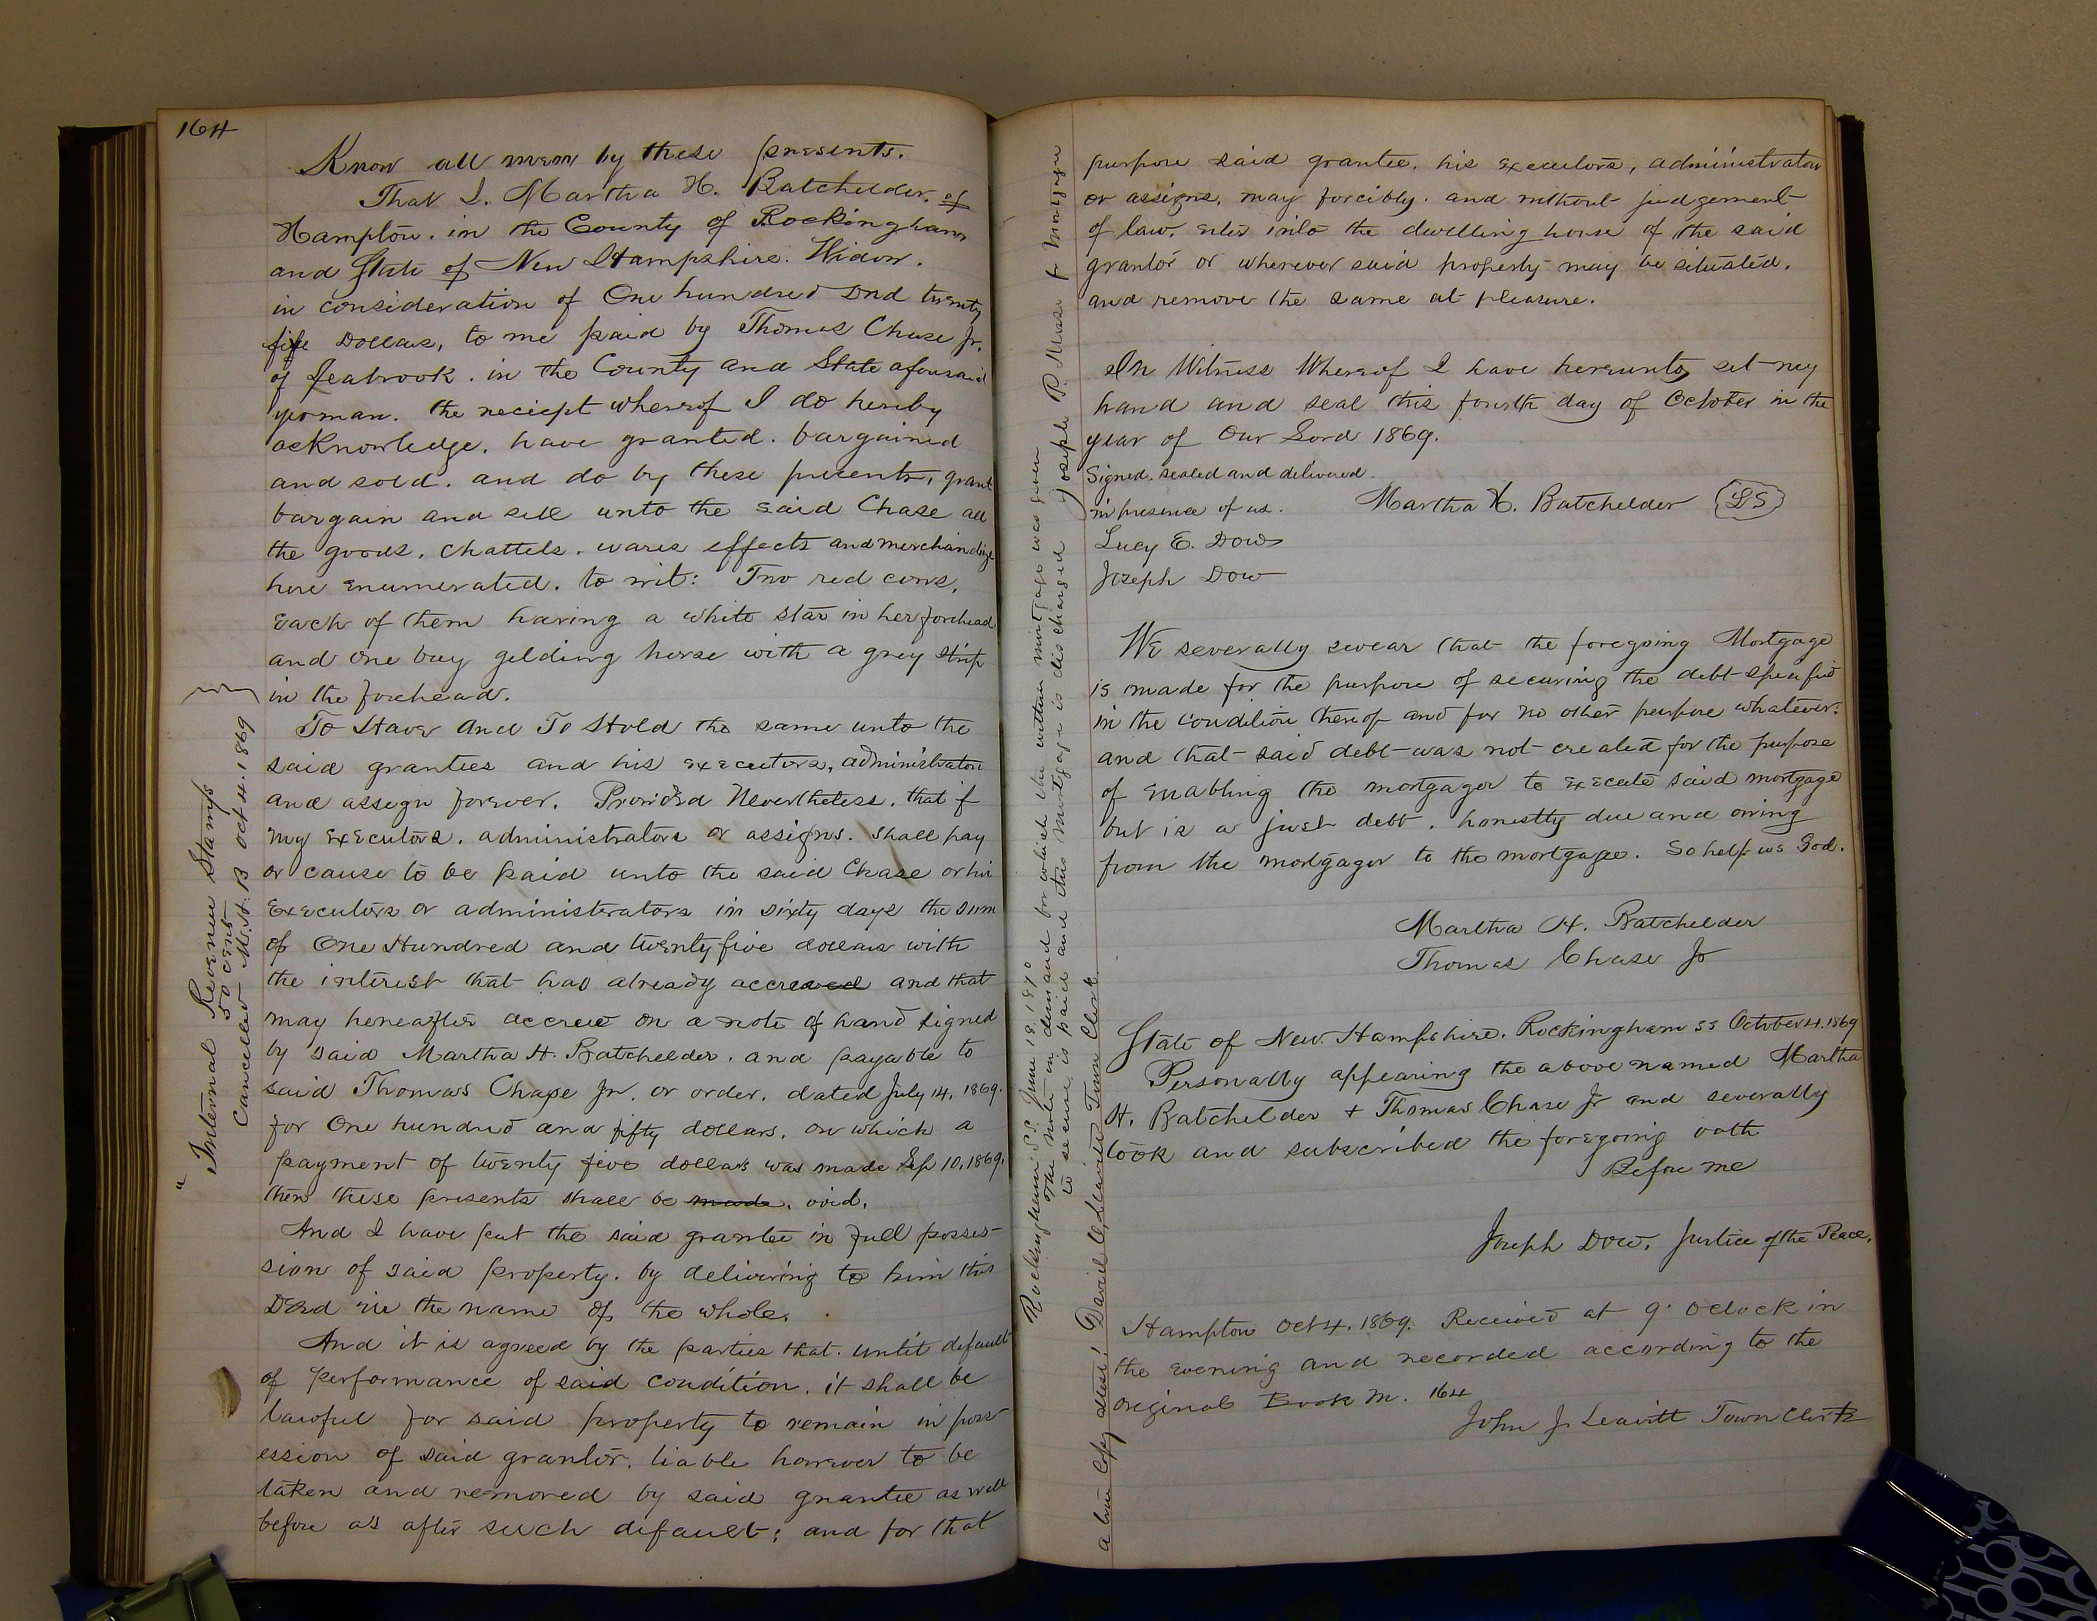 164
Know all men by these presents.
That I. Martha H. Batchelder. of
Hampton. in the County of Rockingham
and State of New Hampshire. Widow.
in consideration of One hundred and twenty
five Dollars, to me paid by Thomas Chase Jr.
of Seabrook. in the County and State aforesaid
yeoman. the reciept whereof I do hereby
acknowledge. have granted. bargained
and sold. and do by these presents, grant
bargain and sell unto the said Chase all
the goods, chattels. wares effects and merchandize
here enumerated. to wit: Two red cows,
each of them having a white star in her forehead
and one bay gelding horse with a grey strip
in the forehead.
To Have And To Hold the same unto the
said grantees and his executors, administrators
and assign forever. Provided Nevertheless, that if
my executors. administrators or assigns. shall pay
or cause to be paid unto the said Chase or his
Executors or administrators in sixty days the sum
of One Hundred and twenty five dollars with
the interest that had already accreued and that
may hereafter accreue on a note of hand signed
by said Martha H. Batchelder. and payable to
said Thomas Chase Jr. or order. dated July 14, 1869.
for One hundred and fifty dollars. on which a
payment of twenty five dollars was made Sep 10, 1869.
then these presents shall be made. void.
And I have put the said grantee in full posses-
sion of said property. by delivering to him this
Deed in the name of the whole.
And it is agreed by the parties that. until default
of performance of said condition. it shall be
lawful for said property to remain in poss-
ession of said grantor. liable however to be
taken and removed by said grantee as well
before as after such default; and for that
Internal Revenue Stamps
50 cent
Cancelled M. H. B Oct 4. 1869
purpose said grantee, his executors, administrators
or assigns, may forcibly. and without judgement
of law. enter into the dwelling house of the said
grantor or wherever said property may be situated.
and remove the same at pleasure.
In Witness Whereof I have hereunto set my
hand and seal this fourth day of October in the
year of Our Lord 1869.
Signed, sealed and delivered.
in presence of us. Martha H. Batchelder LS
Lucy E. Dow
Joseph Dow
We severally swear that the foregoing Mortgage
is made for the purpose of securing the debt specified
in the condition thereof and for no other purpose whatever:
and that said debt was not created for the purpose
of enabling the mortgager to execute said mortgage
but is a just debt. honestly due and owing
from the mortgager to the mortgagee. So help us God.
Martha H. Batchelder
Thomas Chase Jr
State of New Hampshire. Rockingham ss October 4. 1869
Personally appearing the above named Martha
H. Batchelder + Thomas Chase Jr and severally
took and subscribed the foregoing oath
Before me
Joseph Dow. Justice of the Peace.
Hampton Oct 4. 1869. Received at 9. Oclock in
the evening and recorded according to the
original Book M. 164
John J. Leavitt Town Clerk
Rockingham S.S. June 18, 1870
The note in demand for which the within mortgage was given
to secure is paid and this mortgage is discharged Joseph P. Morse + Mortgagee
a true Copy attest; David O. Leavitt Town Clerk